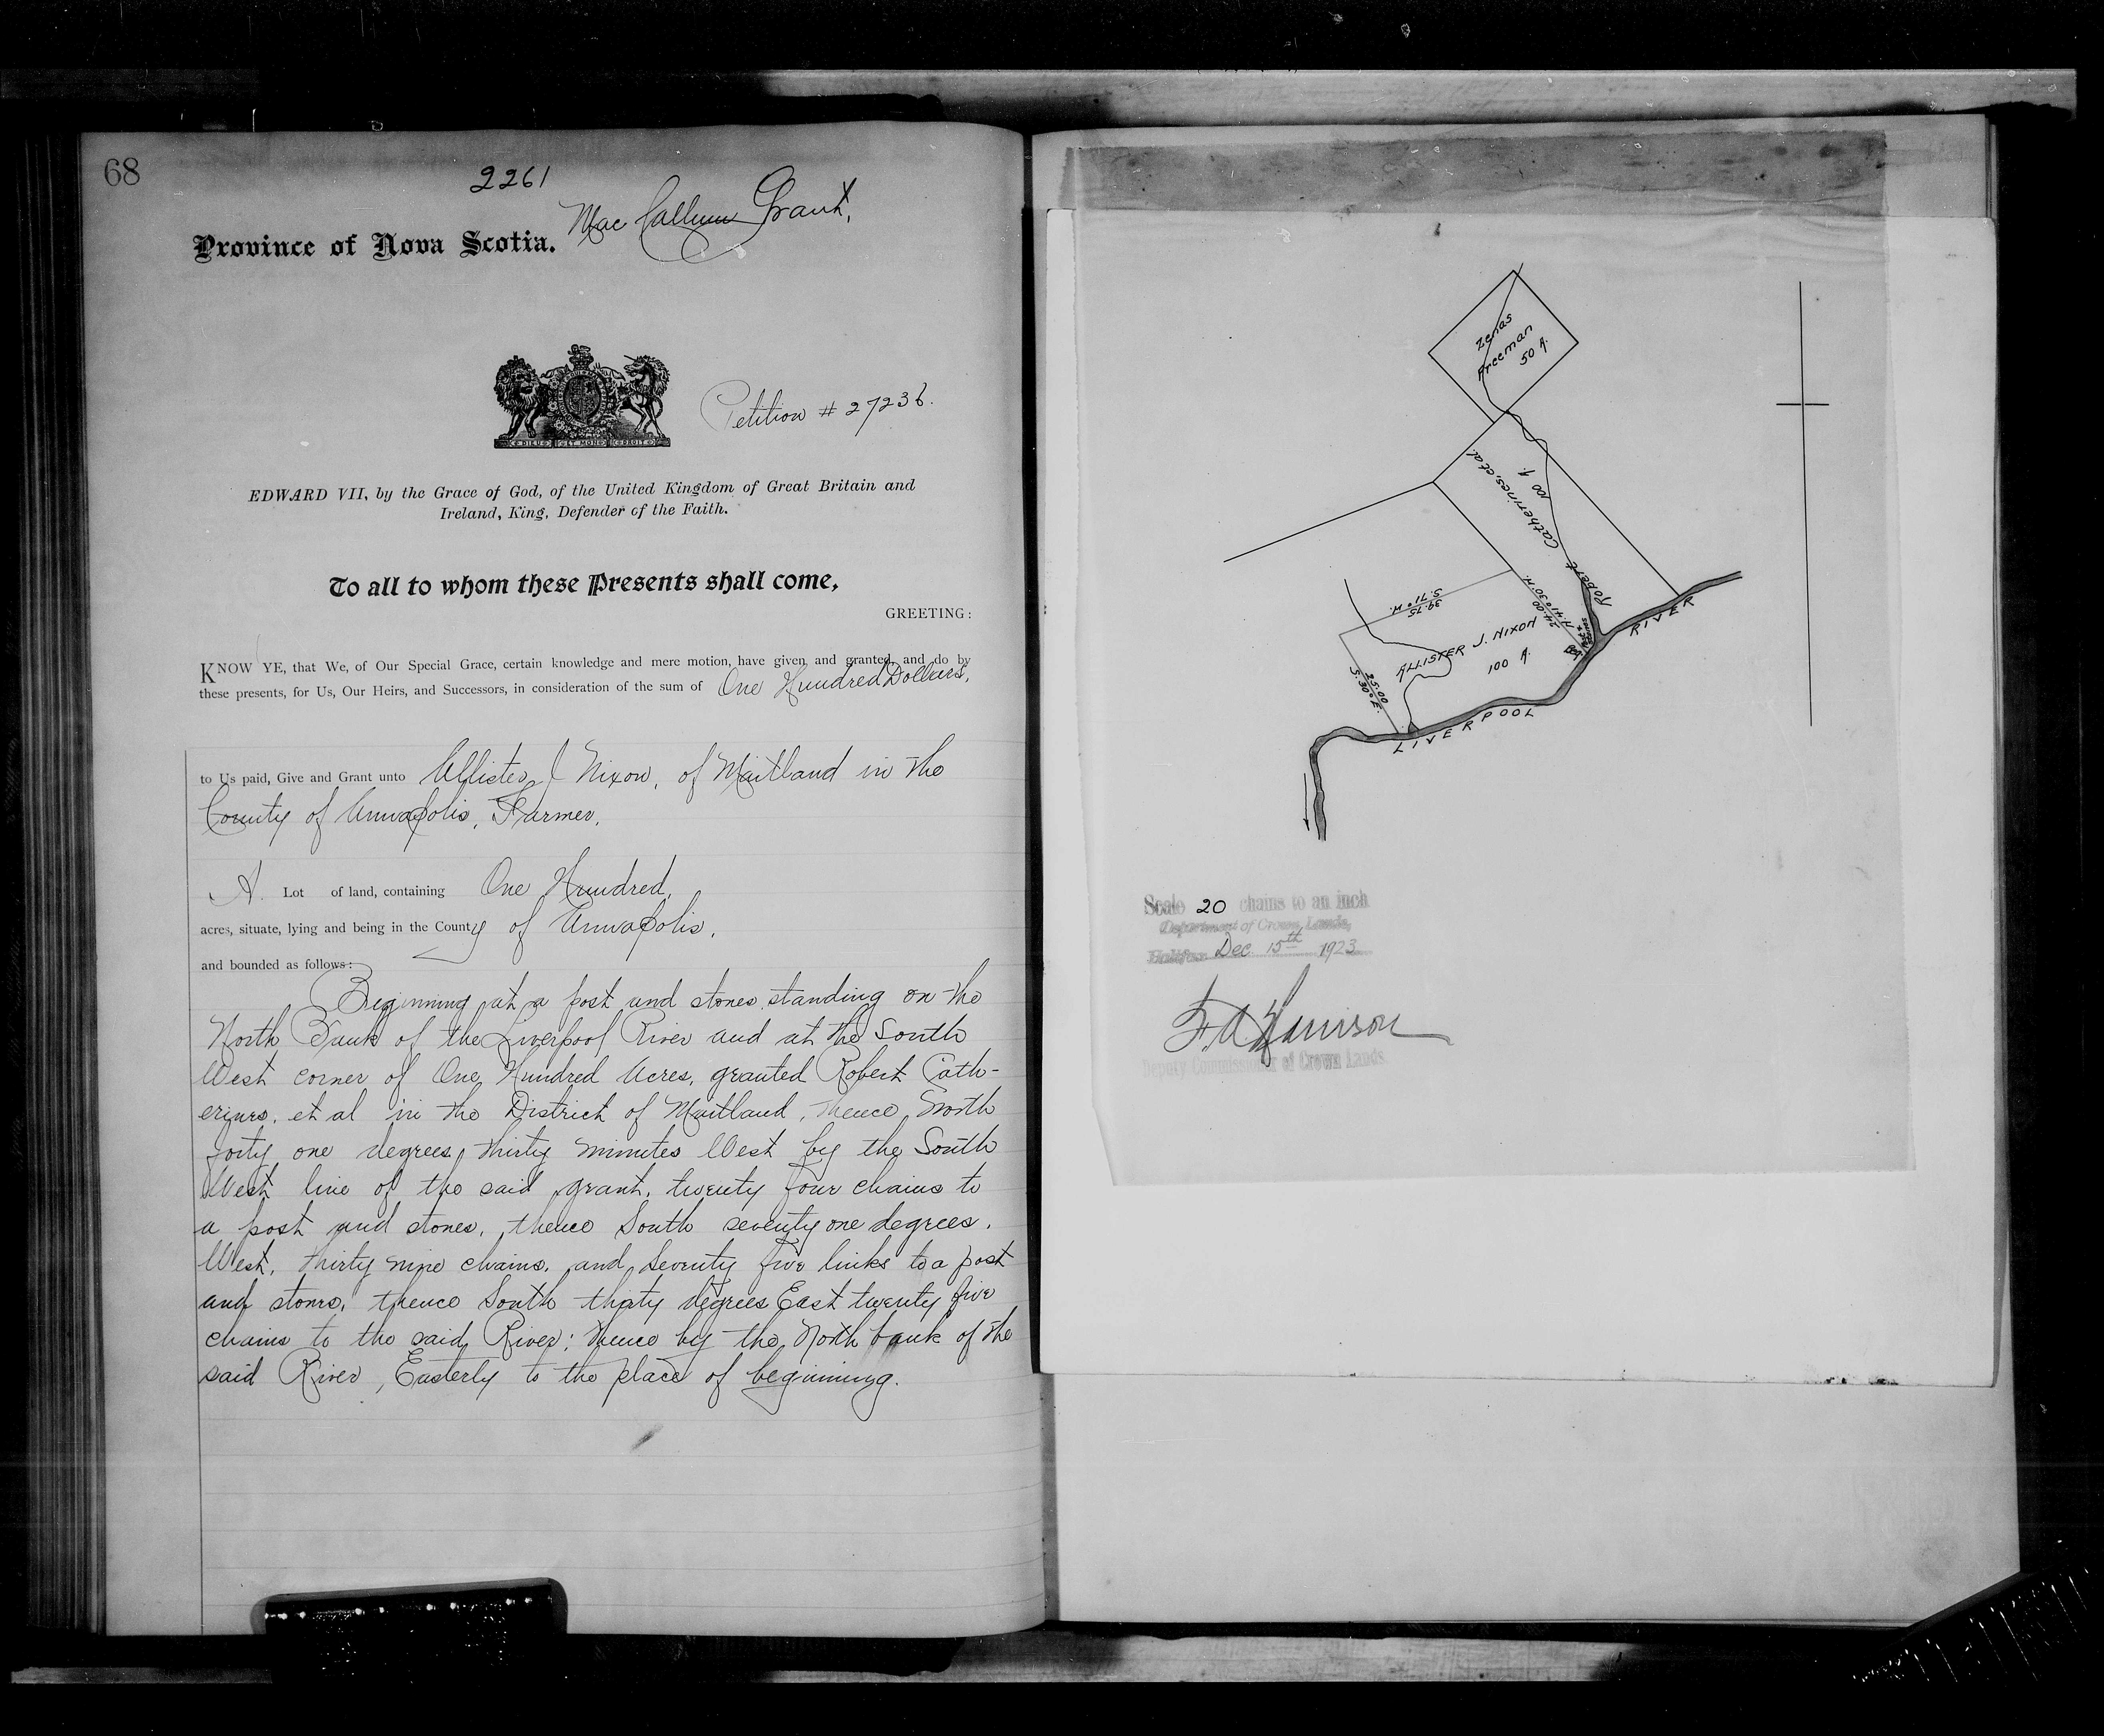 68
2261
Mac Callum Grant,
Province of Nova Scotia.
Petition # 27236.
DIEU ET MON DROIT
EDWARD VII, by the Grace of God, of the United Kingdom of Great Britain and
Ireland, King, Defender of the Faith.
To all to whom these Presents shall come,
GREETING:
KNOW YE, that We, of Our Special Grace, certain knowledge and mere motion, have given and granted, and do by
these presents, for Us, Our Heirs, and Successors, in consideration of the sum of One Hundred Dollars,
to Us paid, Give and Grant unto Allister J Nixon, of Maitland in the
County of Annapolis, Farmer.
A Lot of land, containing One Hundred,
acres, situate, lying and being in the County of Annapolis.
and bounded as follows:
Beginning at a post and stones standing on the
North Bank of the Liverpool River and at the South
West corner of One Hundred Acres, granted Robert Cath-
erines, et al in the District of Maitland, thence North
forty one degrees thirty minutes West by the South
West line of the said grant, twenty four chains to
a post and stones, thence South seventy one degrees.
West, thirty nine chains, and Seventy five links to a post
and stones, thence South thirty degrees East twenty five
chains to the said River; thence by the North bank of the
said River, Easterly to the place of beginning.
Zenas
Freeman
50 A.
Robert Catherines, et al.
100 A.
S. 71° W.
39.75
24.00
N. 41° 30' W.
ALLISTER J. NIXON
100 A.
S. 30° E.
25.00
LIVERPOOL RIVER
Scale 20 chains to an inch
Department of Crown Lands,
Halifax Dec. 15th 1923
F. A. Harrison
Deputy Commissioner of Crown Lands.